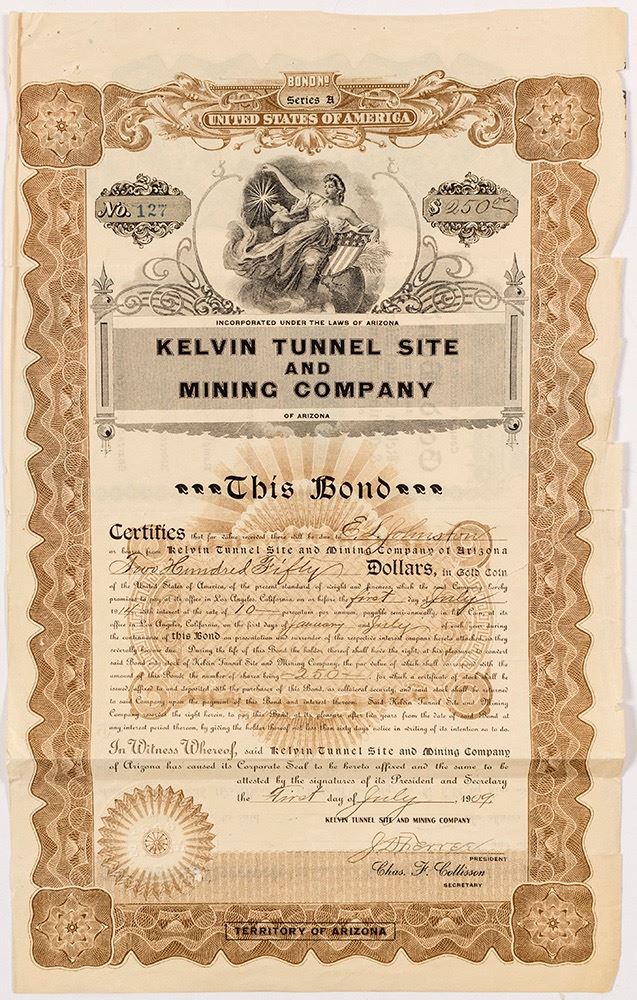 BOND Nº
Series A
UNITED STATES OF AMERICA
No. 127
$250.00
INCORPORATED UNDER THE LAWS OF ARIZONA
KELVIN TUNNEL SITE
AND
MINING COMPANY
OF ARIZONA
This Bond
Certifies that for value received there will be due to E. S. Johnston
or bearer from Kelvin Tunnel Site and Mining Company of Arizona
Two Hundred Fifty Dollars, in Gold Coin
of the United States of America, of the present standard of weight and fineness, which the said Company hereby
promises to pay at its office in Los Angeles, California, on or before the first day of July
1914 with interest at the rate of 10 per centum per annum, payable semi-annually, in like Coin, at its
office in Los Angeles, California, on the first days of January and July of each year during
the continuance of this Bond on presentation and surrender of the respective interest coupons hereto attached as they
severally become due. During the life of this Bond the holder thereof shall have the right, at his pleasure to convert
said Bond into stock of Kelvin Tunnel Site and Mining Company, the par value of which shall correspond with the
amount of this Bond; the number of shares being 250 for which a certificate of stock shall be
issued, affixed to and deposited with the purchase of this Bond, as collateral security, and said stock shall be returned
to said Company upon the payment of this Bond and interest thereon. Said Kelvin Tunnel Site and Mining
Company reserves the right herein, to pay this Bond, at its pleasure after two years from the date of said Bond at
any interest period thereon, by giving the holder thereof not less than sixty days' notice in writing of its intention so to do.
In Witness Whereof, said Kelvin Tunnel Site and Mining Company
of Arizona has caused its Corporate Seal to be hereto affixed and the same to be
attested by the signatures of its President and Secretary
the First day of July, 1909.
KELVIN TUNNEL SITE AND MINING COMPANY
PRESIDENT
Chas. F. Collisson
SECRETARY
TERRITORY OF ARIZONA